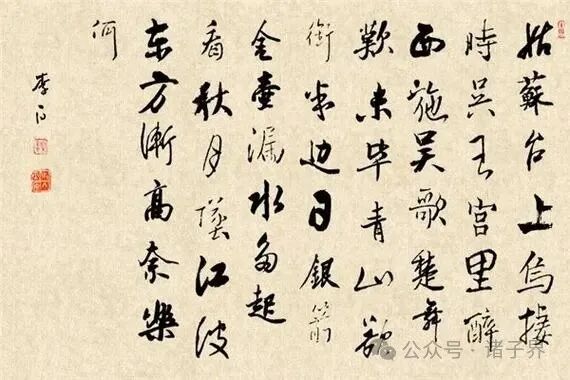 姑蘇台上烏棲
時吴王宫里醉
西施吴歌楚舞
歡未毕青山欲
銜半边日銀箭
金壺漏水多起
看秋月墜江波
东方漸高奈樂
何
李白
公众号 · 诸子界